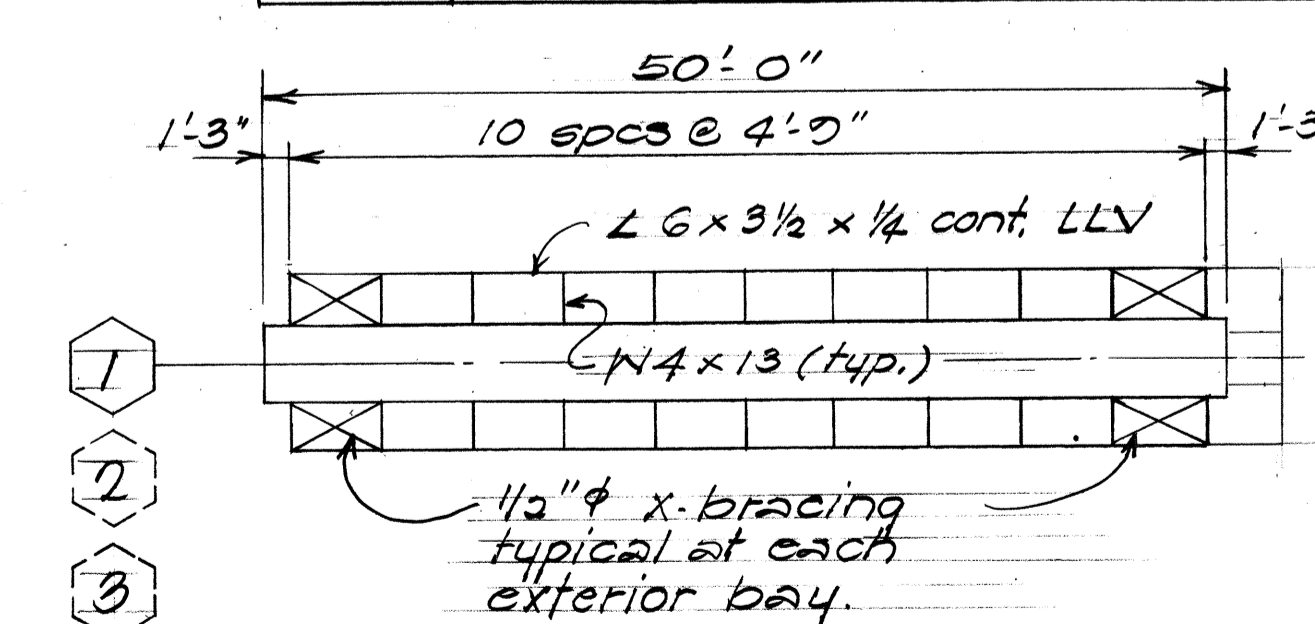 50'-0"
1'-3"
10 spcs @ 4'-9"
1'-3
L 6 x 3 1/2 x 1/4 cont. LLV
1
W4 x 13 (typ.)
2
1/2"ϕ x-bracing
typical at each
3
exterior bay.